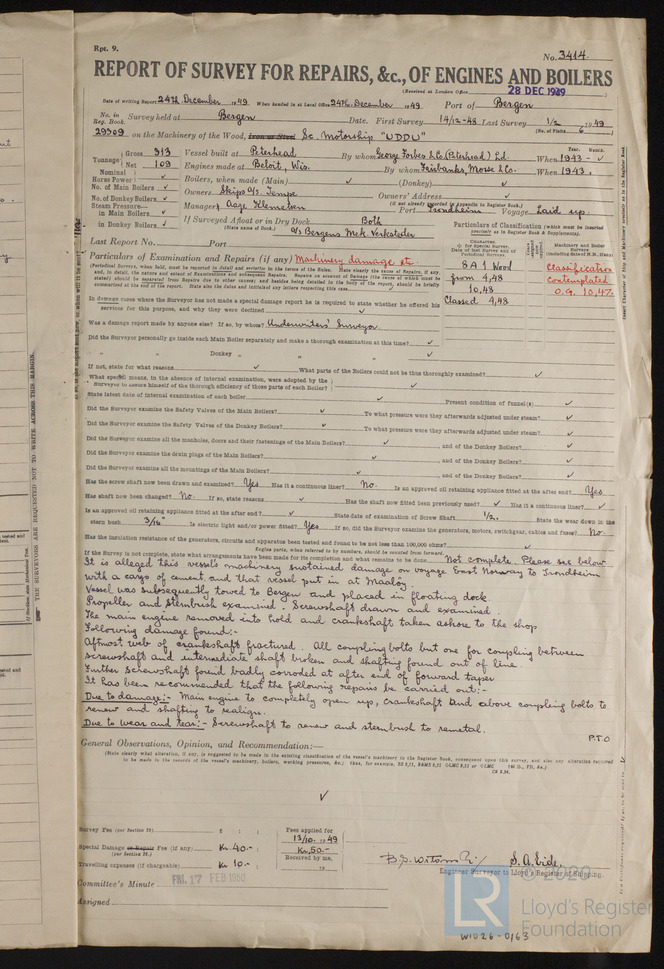 Rpt. 9.
No. 3414
REPORT OF SURVEY FOR REPAIRS, &c., OF ENGINES AND BOILERS
(Received at London Office 28 DEC 1949
Date of writing Report 24th December 1949 When handed in at Local Office 24th December 1949 Port of Bergen
No. in Reg. Book. Survey held at Bergen Date. First Survey 14/12-48 Last Survey 1/2 1949
29309 on the Machinery of the Wood, Iron or Steel Sc. Motorship "UDDU" (No. of Visits 6)
Tonnage Gross 313 Vessel built at Peterhead By whom George Forbes & Co. (Peterhead) Ld. When 1943 -
Net 109 Engines made at Beloit, Wis. By whom Fairbanks, Morse & Co. When 1943.
Nominal Horse Power ✓ Boilers, when made (Main) ✓ (Donkey) ✓
No. of Main Boilers ✓ Owners Skips a/s Tempe Owners' Address ✓
No. of Donkey Boilers ✓ (If not already recorded in Appendix to Register Book.)
Steam Pressure— in Main Boilers ✓ Managers Aage Klemetsen Port Trondheim Voyage Laid up.
in Donkey Boilers ✓ If Surveyed Afloat or in Dry Dock Both
(State name of Dock.) a/s Bergens Mek. Verksteder
Particulars of Classification (which must be inserted precisely as in Register Book & Supplements).
Last Report No. Port
Particulars of Examination and Repairs (if any) Machinery damage etc
B A 1 Wood
from 9,48
10,48
Classed 9,48
Classification
contemplated
O.G. 10,47
In damage cases where the Surveyor has not made a special damage report he is required to state whether he offered his
services for this purpose, and why they were declined ✓
Was a damage report made by anyone else? If so, by whom? Underwriters' Surveyor.
Did the Surveyor personally go inside each Main Boiler separately and make a thorough examination at this time? ✓
" " Donkey " " " ✓
If not, state for what reasons ✓ What parts of the Boilers could not be thus thoroughly examined? ✓
What special means, in the absence of internal examination, were adopted by the
Surveyor to assure himself of the thorough efficiency of those parts of each Boiler? ✓
State latest date of internal examination of each boiler ✓ Present condition of funnel(s) ✓
Did the Surveyor examine the Safety Valves of the Main Boilers? ✓ To what pressure were they afterwards adjusted under steam? ✓
Did the Surveyor examine the Safety Valves of the Donkey Boilers? ✓ To what pressure were they afterwards adjusted under steam? ✓
Did the Surveyor examine all the manholes, doors and their fastenings of the Main Boilers? ✓, and of the Donkey Boilers? ✓
Did the Surveyor examine the drain plugs of the Main Boilers? ✓, and of the Donkey Boilers? ✓
Did the Surveyor examine all the mountings of the Main Boilers? ✓, and of the Donkey Boilers? ✓
Has the screw shaft now been drawn and examined? Yes Has it a continuous liner? No. Is an approved oil retaining appliance fitted at the after end? Yes
Has shaft now been changed? No. If so, state reasons ✓ Has the shaft now fitted been previously used? ✓ Has it a continuous liner? ✓
Is an approved oil retaining appliance fitted at the after end? ✓ State date of examination of Screw Shaft 1/2. State the wear down in the
stern bush 3/16" Is electric light and/or power fitted? Yes If so, did the Surveyor examine the generators, motors, switchgear, cables and fuses? No.
Has the insulation resistance of the generators, circuits and apparatus been tested and found to be not less than 100,000 ohms? ✓
Engine parts, when referred to by numbers, should be counted from forward.
If the Survey is not complete, state what arrangements have been made for its completion and what remains to be done Not complete. Please see below
It is alleged this vessel's machinery sustained damage on voyage East Norway to Trondheim
with a cargo of cement, and that vessel put in at Maaløy.
Vessel was subsequently towed to Bergen and placed in floating dock.
Propeller and sternbush examined. Screwshaft drawn and examined.
The main engine removed into hold and crankshaft taken ashore to the shop
Following damage found:-
Aftmost web of crankshaft fractured. All coupling bolts but one for coupling between
screwshaft and intermediate shaft broken and shafting found out of line.
Further screwshaft found badly corroded at after end of forward taper
It has been recommended that the following repairs be carried out:-
Due to damage:- Main engine to completely open up, crankshaft and above coupling bolts to
renew and shafting to realign.
Due to wear and tear:- Screwshaft to renew and sternbush to remetal.
P.T.O
General Observations, Opinion, and Recommendation:—
✓
Survey Fee (per Section 29) £ : :
Special Damage or Repair Fee (if any) Kr 40.-
(per Section 29.)
Travelling expenses (if chargeable) Kr 10.-
Fees applied for
13/10. 1949
Kr. 50.-
Received by me,
S. A. Eide.
Engineer Surveyor to Lloyd's Register of Shipping.
Committee's Minute FRI. 17 FEB 1950
Assigned
THE SURVEYORS ARE REQUESTED NOT TO WRITE ACROSS THIS MARGIN.
© 2020
LR
Lloyd's Register
Foundation
W1026-0163